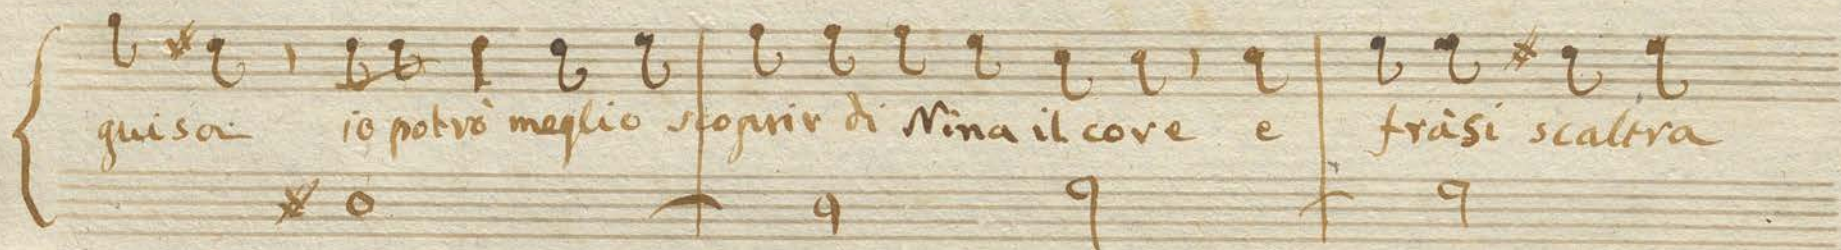 guisa io potrò meglio scoprir di Nina il core e fràsi scaltra